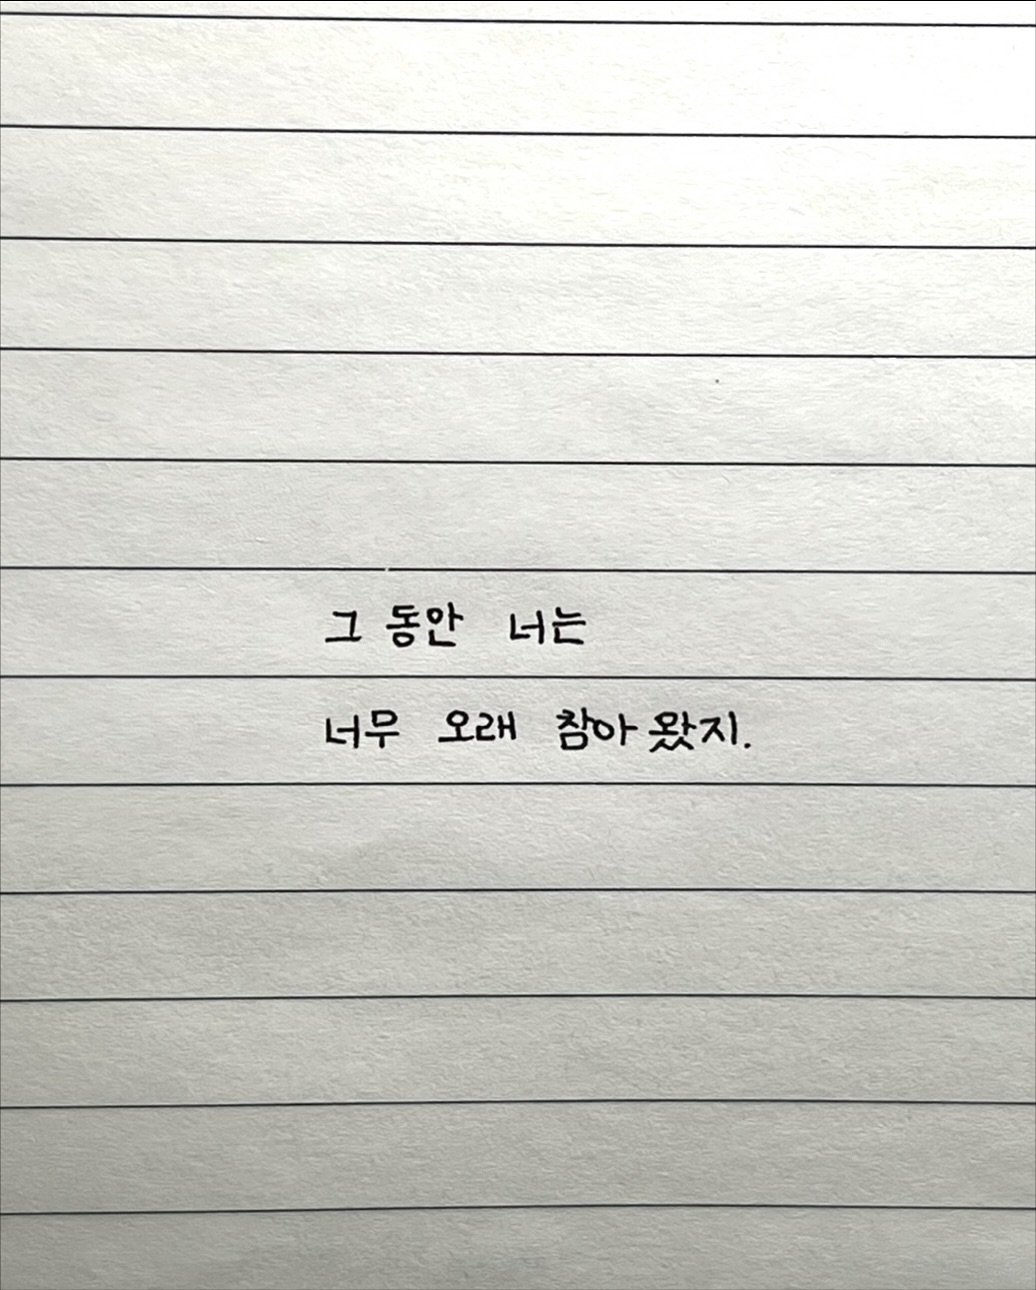 그 동안 너는
너무 오래 참아 왔지.